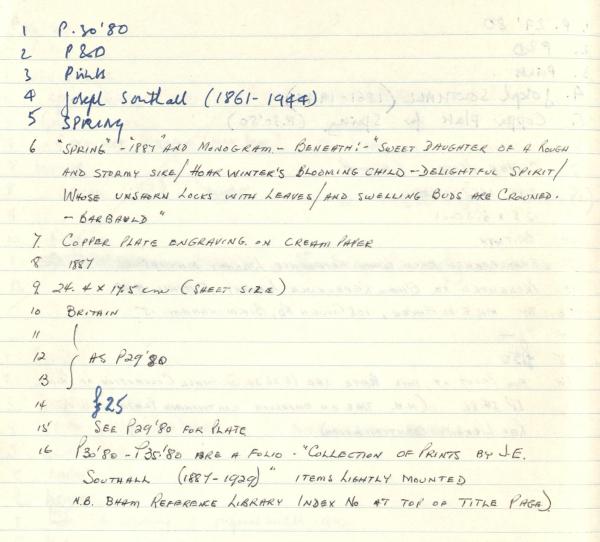 1 P.30'80
2 P&D
3 Prints
4 Joseph Southall (1861-1944)
5 SPRING
6 "SPRING" - "1887" AND MONOGRAM. - BENEATH:- "SWEET DAUGHTER OF A ROUGH
AND STORMY SIRE/ HOAR WINTER'S BLOOMING CHILD - DELIGHTFUL SPIRIT/
WHOSE UNSHORN LOCKS WITH LEAVES/ AND SWELLING BUDS ARE CROWNED.
- BARBAULD"
7. COPPER PLATE ENGRAVING. ON CREAM PAPER
8 1887
9 24.4 x 17.5 cm (SHEET SIZE)
10 BRITAIN
11
12 AS P29'80
13
14 £25
15 SEE P29'80 FOR PLATE
16 P30'80 - P35'80 ARE A FOLIO - "COLLECTION OF PRINTS BY J.E.
SOUTHALL (1887-1929)" ITEMS LIGHTLY MOUNTED
N.B. BHAM REFERENCE LIBRARY INDEX NO AT TOP OF TITLE PAGE)